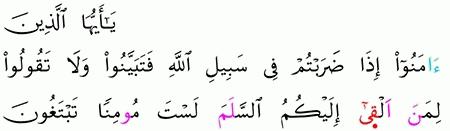 يَٰٓأَيُّهَا ٱلَّذِينَ
ءَامَنُوٓا۟ إِذَا ضَرَبْتُمْ فِى سَبِيلِ ٱللَّهِ فَتَبَيَّنُوا۟ وَلَا تَقُولُوا۟
لِمَنَ اَلْقِىٰٓ إِلَيْكُمُ ٱلسَّلَمَ لَسْتَ مُومِنًا تَبْتَغُونَ